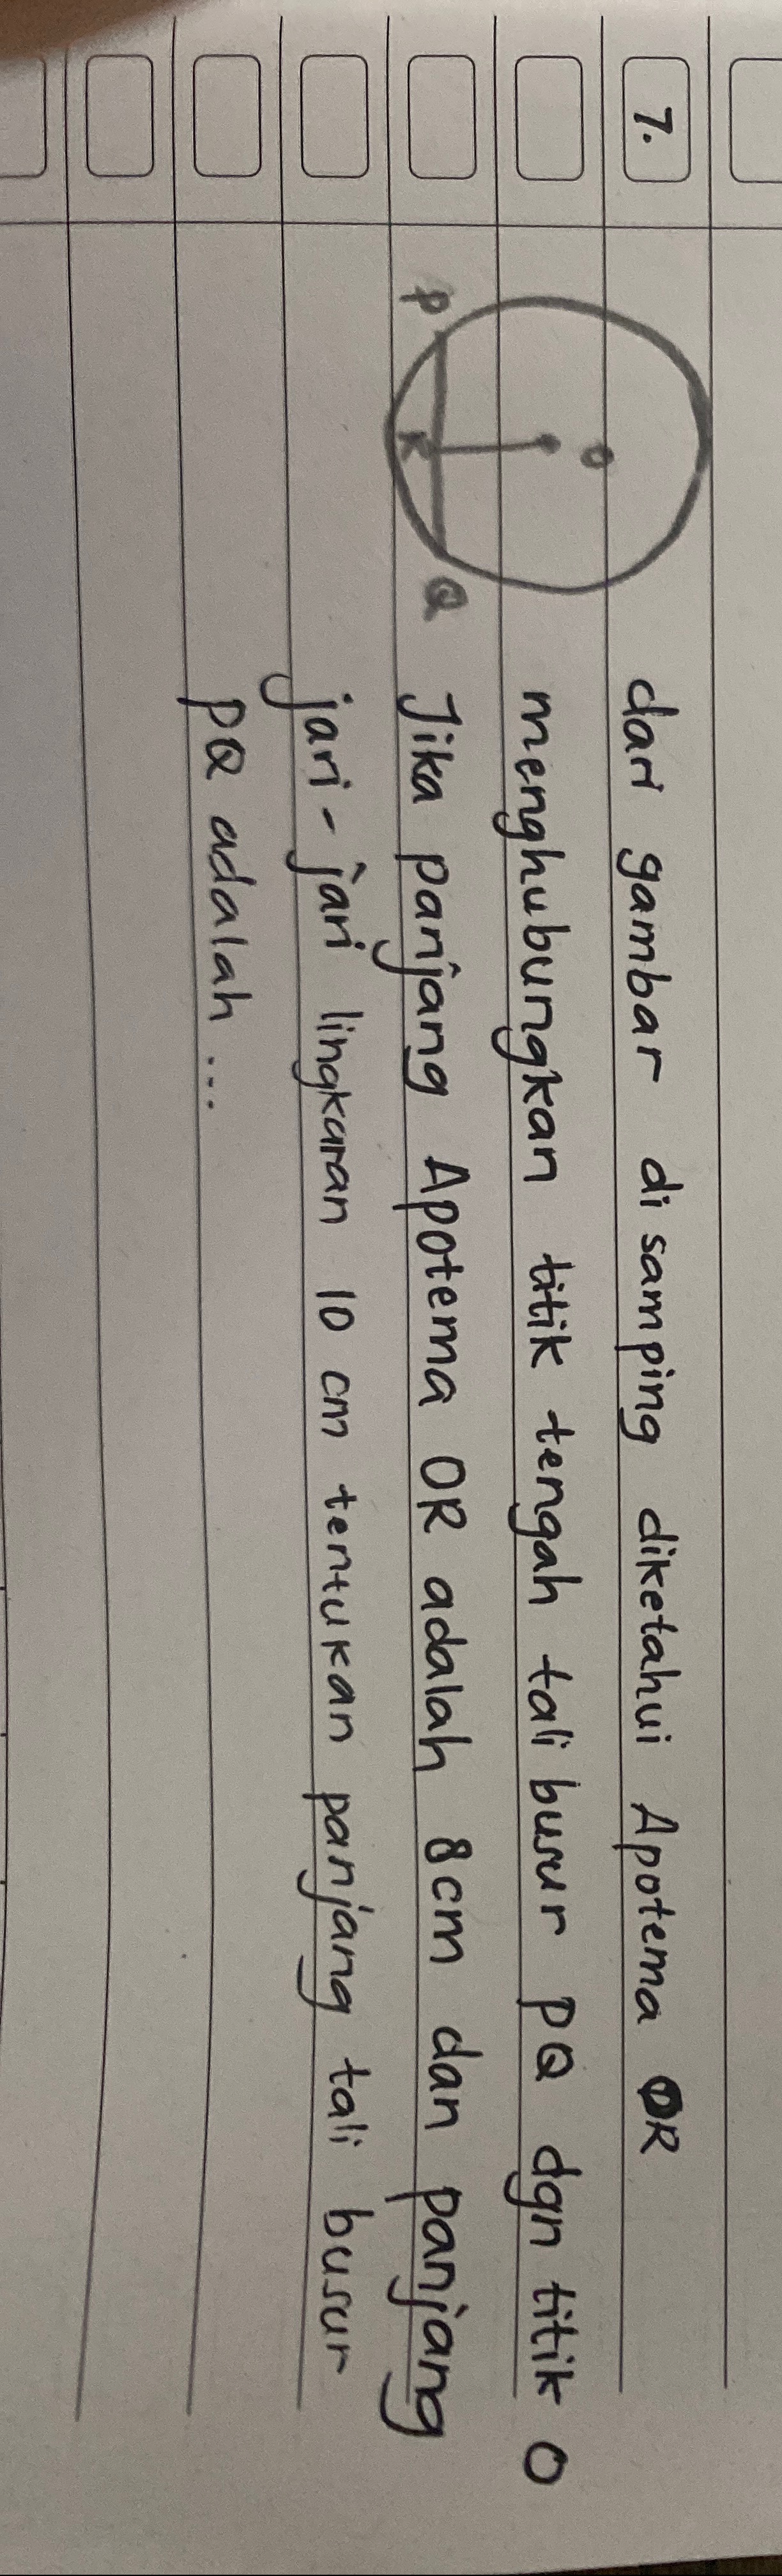 7.
P
R
Q
O
dari gambar disamping diketahui Apotema OR
menghubungkan titik tengah tali busur PQ dgn titik O
Jika panjang Apotema OR adalah 8cm dan panjang
jari-jari lingkaran 10 cm tentukan panjang tali busur
PQ adalah ...